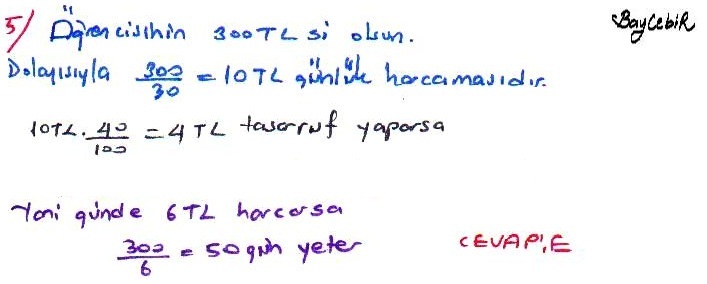 BayCebiR
5) Öğrencisinin 300TL si olsun.
Dolayısıyla 300/30 = 10TL günlük harcamasıdır.
10TL. 40/100 = 4 TL tasarruf yaparsa
Yani günde 6TL harcarsa
300/6 = 50 gün yeter
CEVAP: E